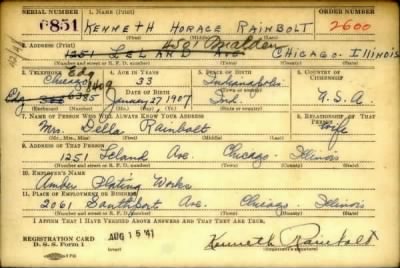 SERIAL NUMBER
1. NAME (Print)
ORDER NUMBER
851
KENNETH HORACE RAINBOLT
2600
(First) (Middle) (Last)
2. ADDRESS (Print)
4501 Malden
1251 LELAND AVE. CHICAGO ILLINOIS
(Number and street or R. F. D. number) (Town) (County) (State)
3. TELEPHONE
4. AGE IN YEARS
5. PLACE OF BIRTH
6. COUNTRY OF CITIZENSHIP
Chicago
33
Indianapolis
DATE OF BIRTH
(Town or county)
January 27 1907
Ind.
U.S.A.
(Exchange) (Number)
(Mo.) (Day) (Yr.)
(State or country)
7. NAME OF PERSON WHO WILL ALWAYS KNOW YOUR ADDRESS
8. RELATIONSHIP OF THAT PERSON
Mrs. Della Rainbolt
Wife
(Mr., Mrs., Miss) (First) (Middle) (Last)
9. ADDRESS OF THAT PERSON
1251 Leland Ave. Chicago Illinois
(Number and street or R. F. D. number) (Town) (County) (State)
10. EMPLOYER'S NAME
Amber Plating Works
11. PLACE OF EMPLOYMENT OR BUSINESS
2061 Southport Ave Chicago Illinois
(Number and street or R. F. D. number) (Town) (County) (State)
I AFFIRM THAT I HAVE VERIFIED ABOVE ANSWERS AND THAT THEY ARE TRUE.
REGISTRATION CARD
D. S. S. Form 1
AUG 15 '41
Kenneth Rainbolt
(Registrant's signature)